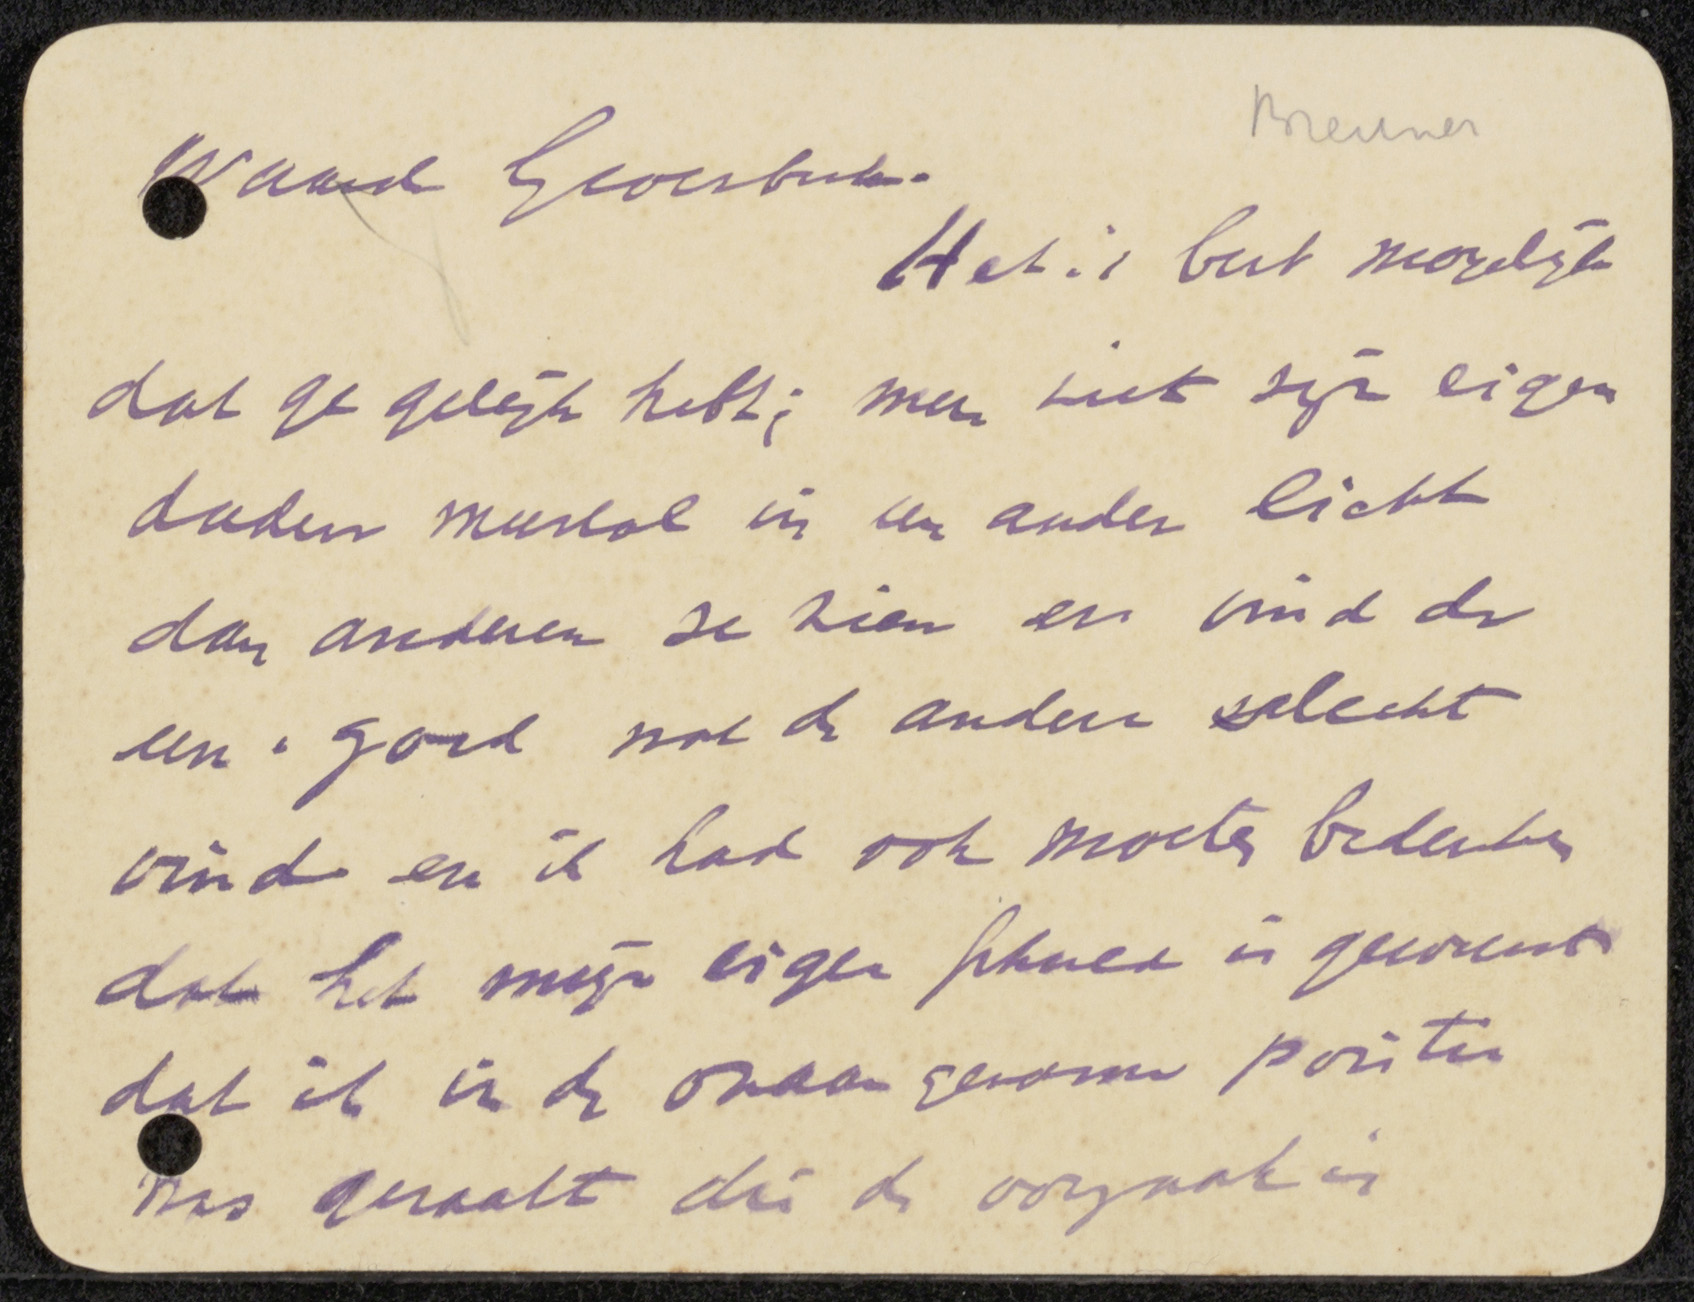 Breitner
Waarde Gevers
Het is best mogelijk
dat ge gelijk hebt; men ziet zijn eigen
daden meestal in een ander licht
dan anderen ze zien en vind de
een goed wat de andere slecht
vind en ik had ook moeten bedenken
dat het mijn eigen schuld is geweest
dat ik in de onaangename positie
was geraakt die de oorzaak is